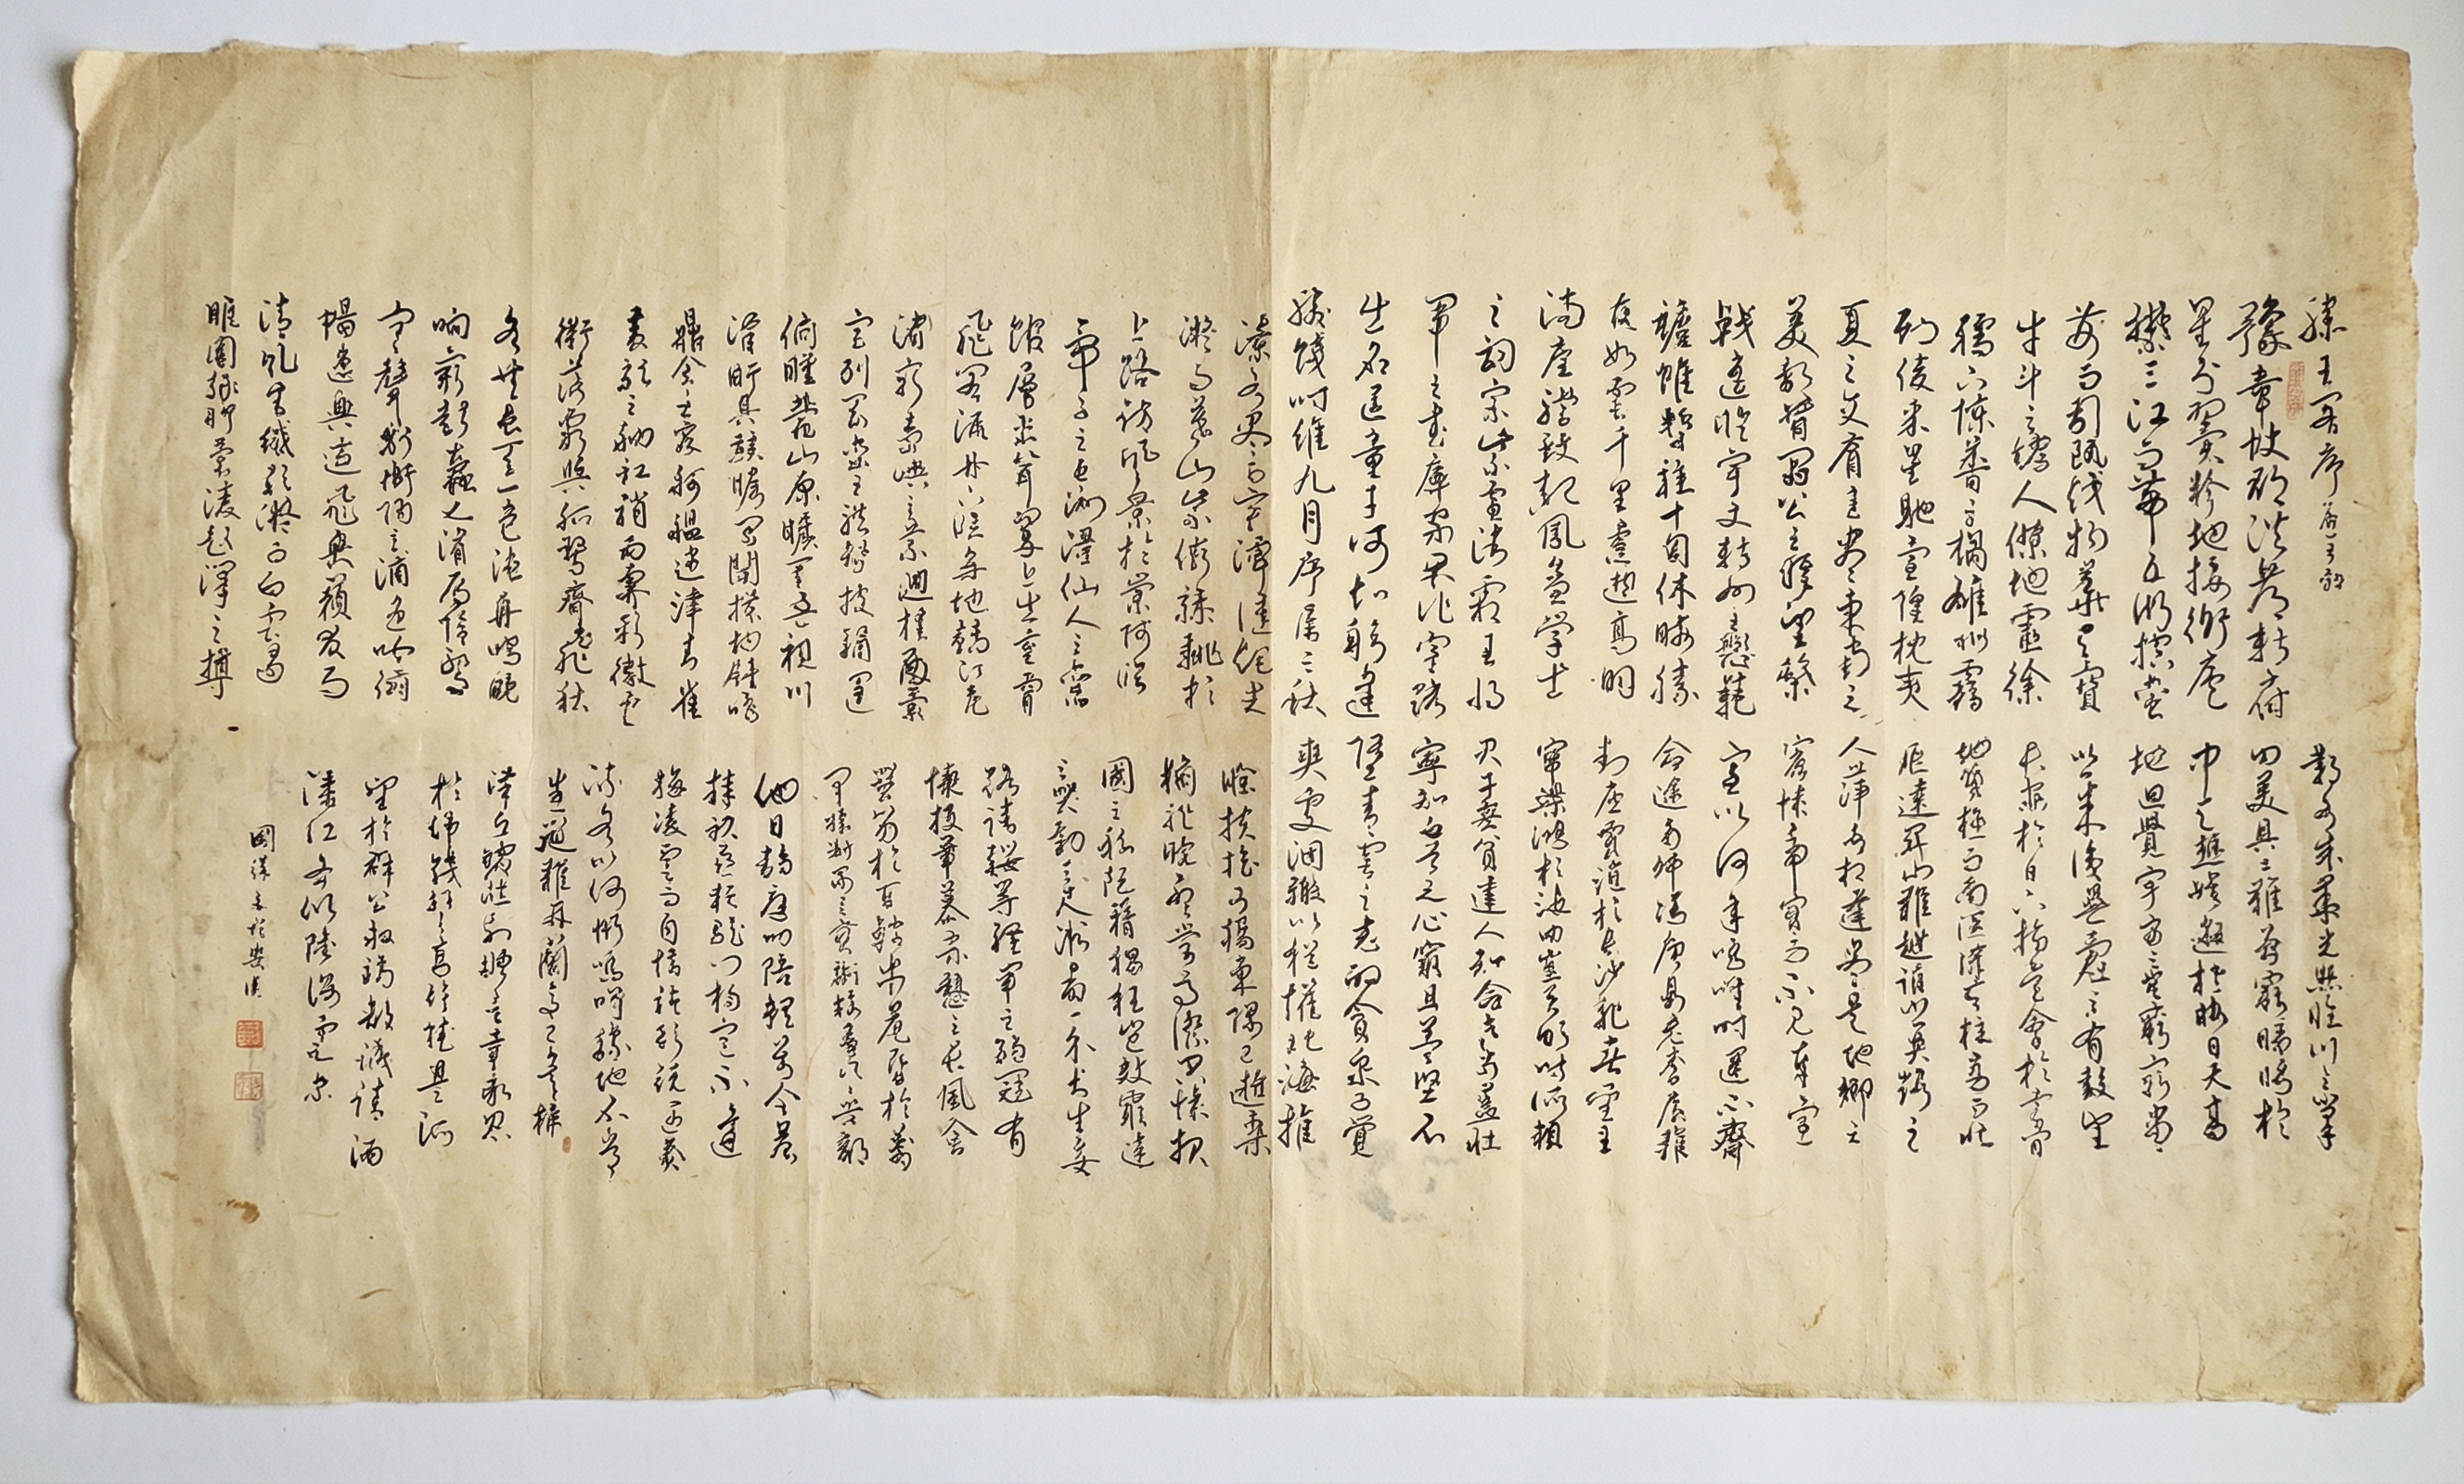 滕王閣序 唐王勃
豫章故郡洪都新府
星分翼軫地接衡廬
襟三江而帶五湖控蠻
荊而引甌越物華天寶
牛斗之墟人傑地靈徐
孺下陳蕃之榻雄州霧
列俊采星馳臺隍枕夷
夏之交賓主盡東南之
美都督閻公之雅望棨
戟遙臨宇文新州之懿範
襜帷暫駐十旬休暇勝
友如雲千里逢迎高朋
滿座騰蛟起鳳孟學士
之詞宗紫電清霜王將
軍之武庫家君作宰路
出名區童子何知躬逢
勝餞時維九月序屬三秋
潦水盡而寒潭清煙光
凝而暮山紫儼驂騑於
上路訪風景於崇阿臨
帝子之長洲得仙人之舊
館層巒聳翠上出重霄
飛閣流丹下臨無地鶴汀鳧
渚窮島嶼之縈迴桂殿蘭
宮列岡巒之體勢披繡闥
俯雕甍山原曠其盈視川
澤盱其駭矚閭閻撲地鐘鳴
鼎食之家舸艦迷津青雀
黃龍之舳虹銷雨霽彩徹雲
衢落霞與孤鶩齊飛秋
水共長天一色漁舟唱晚
響窮彭蠡之濱雁陣驚
寒聲斷衡陽之浦遙吟俯
暢逸興遄飛爽籟發而
清風生纖歌凝而白雲遏
睢園綠竹氣凌彭澤之樽
鄴水朱華光照臨川之筆
四美具二難並窮睇眄於
中天極娛遊於暇日天高
地迥覺宇宙之無窮興盡
悲來識盈虛之有數望
長安於日下指吳會於雲間
地勢極而南溟深天柱高而北
辰遠關山難越誰悲失路之
人萍水相逢盡是他鄉之
客懷帝閽而不見奉宣
室以何年嗚呼時運不齊
命途多舛馮唐易老李廣難
封屈賈誼於長沙非無聖主
竄梁鴻於海曲豈乏明時所賴
君子安貧達人知命老當益壯
寧知白首之心窮且益堅不
墜青雲之志酌貪泉而覺
爽處涸轍以猶懽北海雖
賒扶搖可接東隅已逝桑
榆非晚孟嘗高潔空懷報
國之阮藉猖狂豈效窮途
之哭勃三尺微命一介書生無
路請纓等終軍之弱冠有
懷投筆慕宗愨之長風舍
簪笏於百齡奉晨昏於萬
里非謝家之寶樹接孟氏之芳鄰
他日趨庭叨陪鯉對今晨
捧袂喜託龍門楊意不逢
撫凌雲而自惜鍾期既遇奏
流水以何慚嗚呼勝地不常
盛筵難再蘭亭已矣梓
澤丘墟臨別贈言幸承恩
於偉餞登高作賦是所
望於群公敢竭鄙誠請灑
潘江各傾陸海云爾